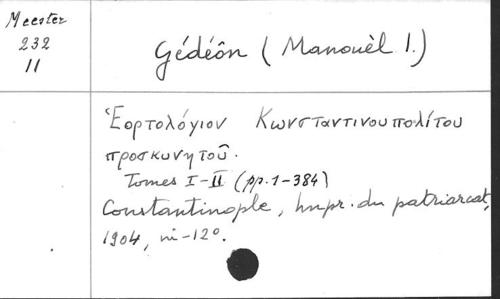 Meester
232
II
Gédéôn (Manouèl I.)
Ἑορτολόγιον Κωνσταντινουπολίτου
προσκυνητοῦ.
Tomes I-II (pp. 1-384)
Constantinople, Impr. du patriarcat,
1904, in-12°.